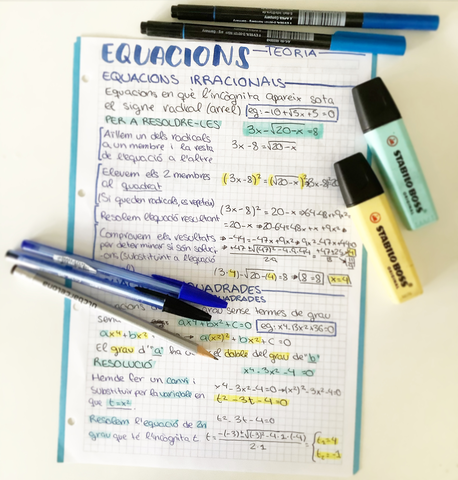 EQUACIONS — TEORIA
EQUACIONS IRRACIONALS
Equacions en què l'incògnita apareix sota
el signe radial (arrel) eg: -10+√5x+5=0
PER A RESOLDRE-LES:
3x-√20-x=8
Aïllem un dels radicals
a un membre i la resta
de l'equació a l'altre
3x-8=√20-x
Elevem els 2 membres
al quadrat
(3x-8)²=(√20-x)²
(Si queden radicals, es repeteix)
(3x-8)²=20-x
Resolem l'equació resultant
Comprovem els resultats
per determinar si són soluci-
ons (substituint a l'equació
(3·4)-√20-(4)=8 → 8=8 x=4
QUADRADES
sense termes de grau
ax⁴+bx²+c=0 eg: x⁴-13x²+36=0
a(x²)²+bx²+c=0
El grau d'"a" ha el doble del grau de "b"
RESOLUCIÓ:
x⁴-3x²-4=0
Hem de fer un canvi i
substituir per la variable en
que t=x²
x⁴-3x²-4=0→(x²)²-3x²-4=0
t²-3t-4=0
Resolem l'equació de 2n
grau que té l'incògnita t
t²-3t-4=0
t=-(-3)±√(-3)²-4·1·(-4)
2·1
t₁=4
t₂=-1
STABILO BOSS
STABILO BOSS